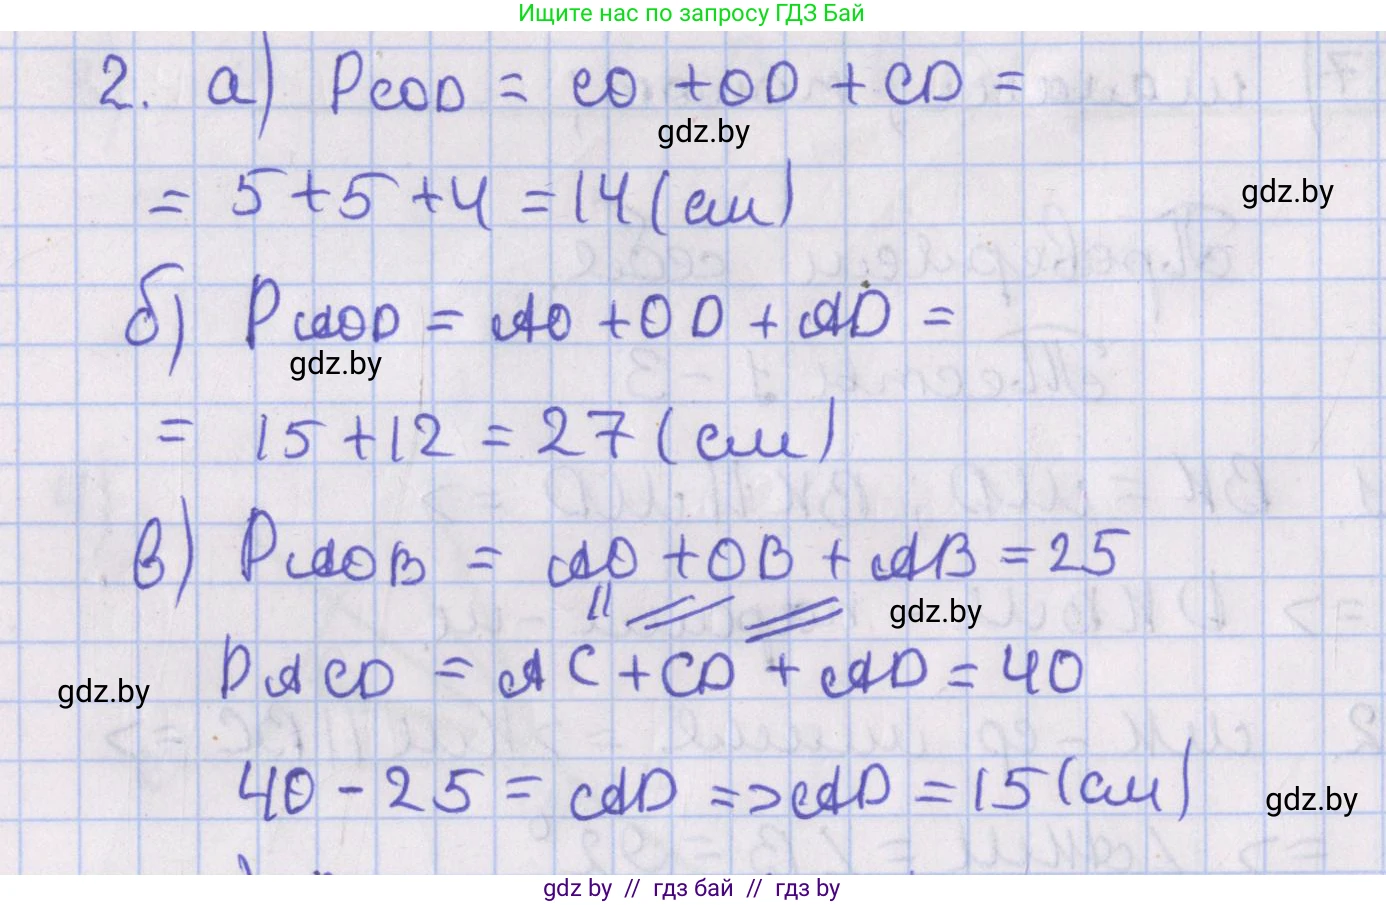 Ищите нас по запросу ГДЗ Бай
2. а) PCOD = CO + OD + CD =
gdz.by
= 5 + 5 + 4 = 14 (см)
gdz.by
б) PAOD = AO + OD + AD =
gdz.by
= 15 + 12 = 27 (см)
в) PAOB = AO + OB + AB = 25
gdz.by
PACD = AC + CD + AD = 40
gdz.by
40 - 25 = AD => AD = 15 (см)
gdz.by
gdz by // гдз бай // гдз by